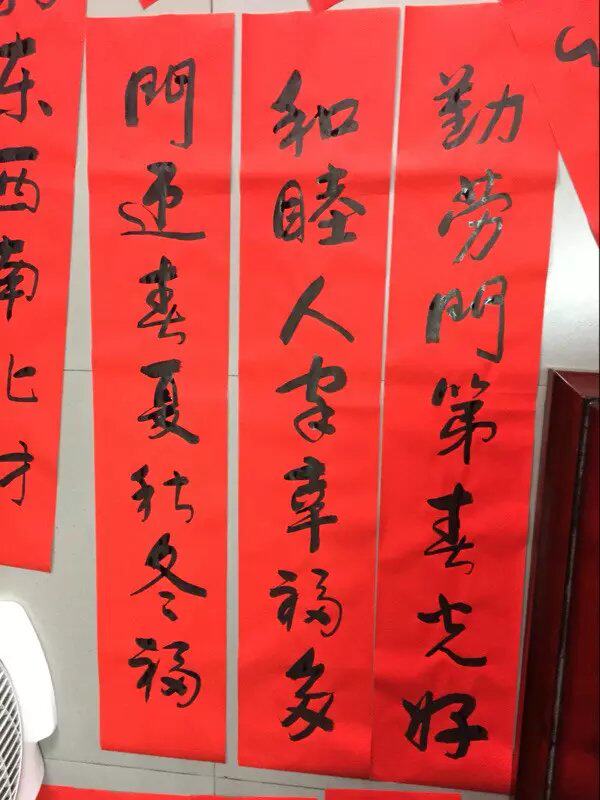 勤劳門第春光好
和睦人家幸福多
門迎春夏秋冬福
东西南北